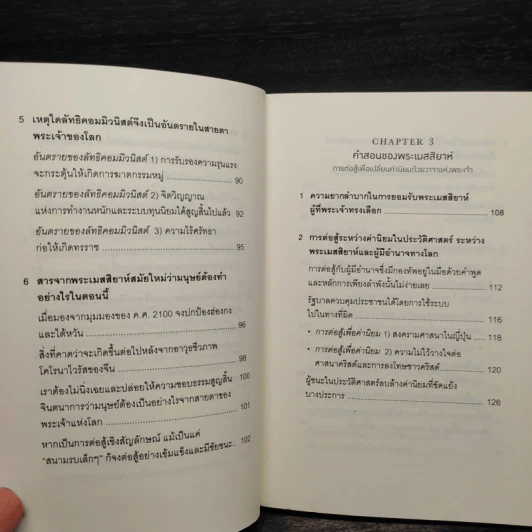 5 เหตุใดลัทธิคอมมิวนิสต์จึงเป็นอันตรายในสายตา
พระเจ้าของโลก
อันตรายของลัทธิคอมมิวนิสต์ 1) การรับรองความรุนแรง
จะกระตุ้นให้เกิดการฆาตกรรมหมู่ 90
อันตรายของลัทธิคอมมิวนิสต์ 2) จิตวิญญาณ
แห่งการทำงานหนักและระบบทุนนิยมได้สูญสิ้นไปแล้ว 92
อันตรายของลัทธิคอมมิวนิสต์ 3) ความไร้ศรัทธา
ก่อให้เกิดทรราช 95
6 สารจากพระเมสสิยาห์สมัยใหม่ว่ามนุษย์ต้องทำ
อย่างไรในตอนนี้
เมื่อมองจากมุมมองของ ค.ศ. 2100 จงปกป้องฮ่องกง
และไต้หวัน 96
สิ่งที่คาดว่าจะเกิดขึ้นต่อไปหลังจากอาวุธชีวภาพ
โคโรนาไวรัสของจีน 98
เราต้องไม่นิ่งเฉยและปล่อยให้ความชอบธรรมสูญสิ้น
จินตนาการว่ามนุษย์ต้องเป็นอย่างไรจากสายตาของ
พระเจ้าแห่งโลก 101
หากเป็นการต่อสู้เชิงสัญลักษณ์ แม้เป็นแค่
“สนามรบเล็กๆ” ก็จงต่อสู้อย่างเข้มแข็งและมีชัยชนะ.. 102
CHAPTER 3
คำสอนของพระเมสสิยาห์
การต่อสู้เพื่อเปลี่ยนค่านิยมด้วยวาจาแห่งพระเจ้า
1 ความยากลำบากในการยอมรับพระเมสสิยาห์
ผู้ที่พระเจ้าทรงเลือก 108
2 การต่อสู้ระหว่างค่านิยมในประวัติศาสตร์ ระหว่าง
พระเมสสิยาห์และผู้มีอำนาจทางโลก
การต่อสู้กับผู้มีอำนาจซึ่งมีกองทัพอยู่ในมือด้วยคำพูด
และหลักการเพียงลำพังนั้นไม่ง่ายเลย 112
รัฐบาลควบคุมประชาชนได้โดยการใช้ระบบ
ไปในทางที่ผิด 116
• การต่อสู้เพื่อค่านิยม 1) สงครามศาสนาในญี่ปุ่น 118
• การต่อสู้เพื่อค่านิยม 2) ความไม่ไว้วางใจต่อ
ศาสนาคริสต์และการลงโทษชาวคริสต์ 120
ผู้ชนะในประวัติศาสตร์ลบล้างค่านิยมที่ขัดแย้ง
บางประการ 126